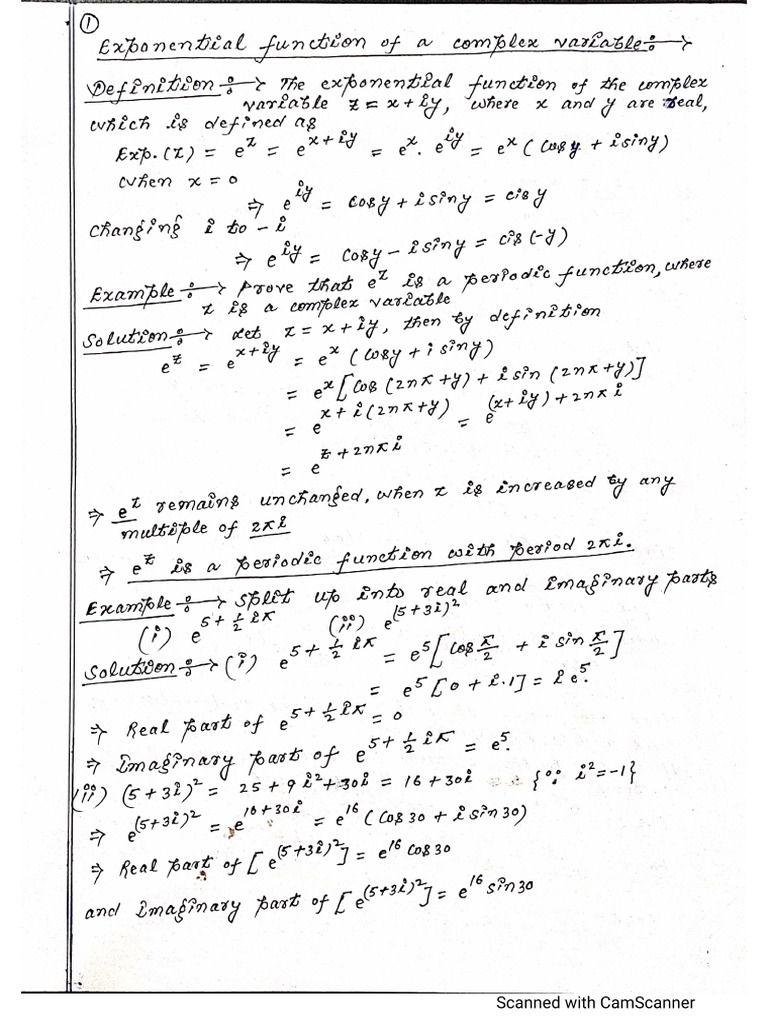 ①
Exponential function of a complex variable :→
Definition :→ The exponential function of the complex
variable z = x + iy, where x and y are real,
which is defined as
Exp.(z) = e^z = e^{x+iy} = e^x . e^{iy} = e^x (cos y + i sin y)
when x = 0
⇒ e^{iy} = cos y + i sin y = cis y
changing i to - i
⇒ e^{iy} = cos y - i sin y = cis (-y)
Example :→ prove that e^z is a periodic function, where
z is a complex variable
Solution :→ let z = x + iy, then by definition
e^z = e^{x+iy} = e^x (cos y + i sin y)
= e^x [cos (2nπ + y) + i sin (2nπ + y)]
= e^{x + i(2nπ+y)} = e^{(x+iy) + 2nπi}
= e^{z + 2nπi}
⇒ e^z remains unchanged, when z is increased by any
multiple of 2πi
⇒ e^z is a periodic function with period 2πi.
Example :→ split up into real and imaginary parts
(i) e^{5 + 1/2 iπ} (ii) e^{(5+3i)^2}
Solution :→ (i) e^{5 + 1/2 iπ} = e^5 [cos π/2 + i sin π/2]
= e^5 [0 + i.1] = i e^5.
⇒ Real part of e^{5 + 1/2 iπ} = 0
⇒ Imaginary part of e^{5 + 1/2 iπ} = e^5.
(ii) (5 + 3i)^2 = 25 + 9i^2 + 30i = 16 + 30i {∵ i^2 = -1}
⇒ e^{(5+3i)^2} = e^{16+30i} = e^{16} (cos 30 + i sin 30)
⇒ Real part of [e^{(5+3i)^2}] = e^{16} cos 30
and Imaginary part of [e^{(5+3i)^2}] = e^{16} sin 30
Scanned with CamScanner